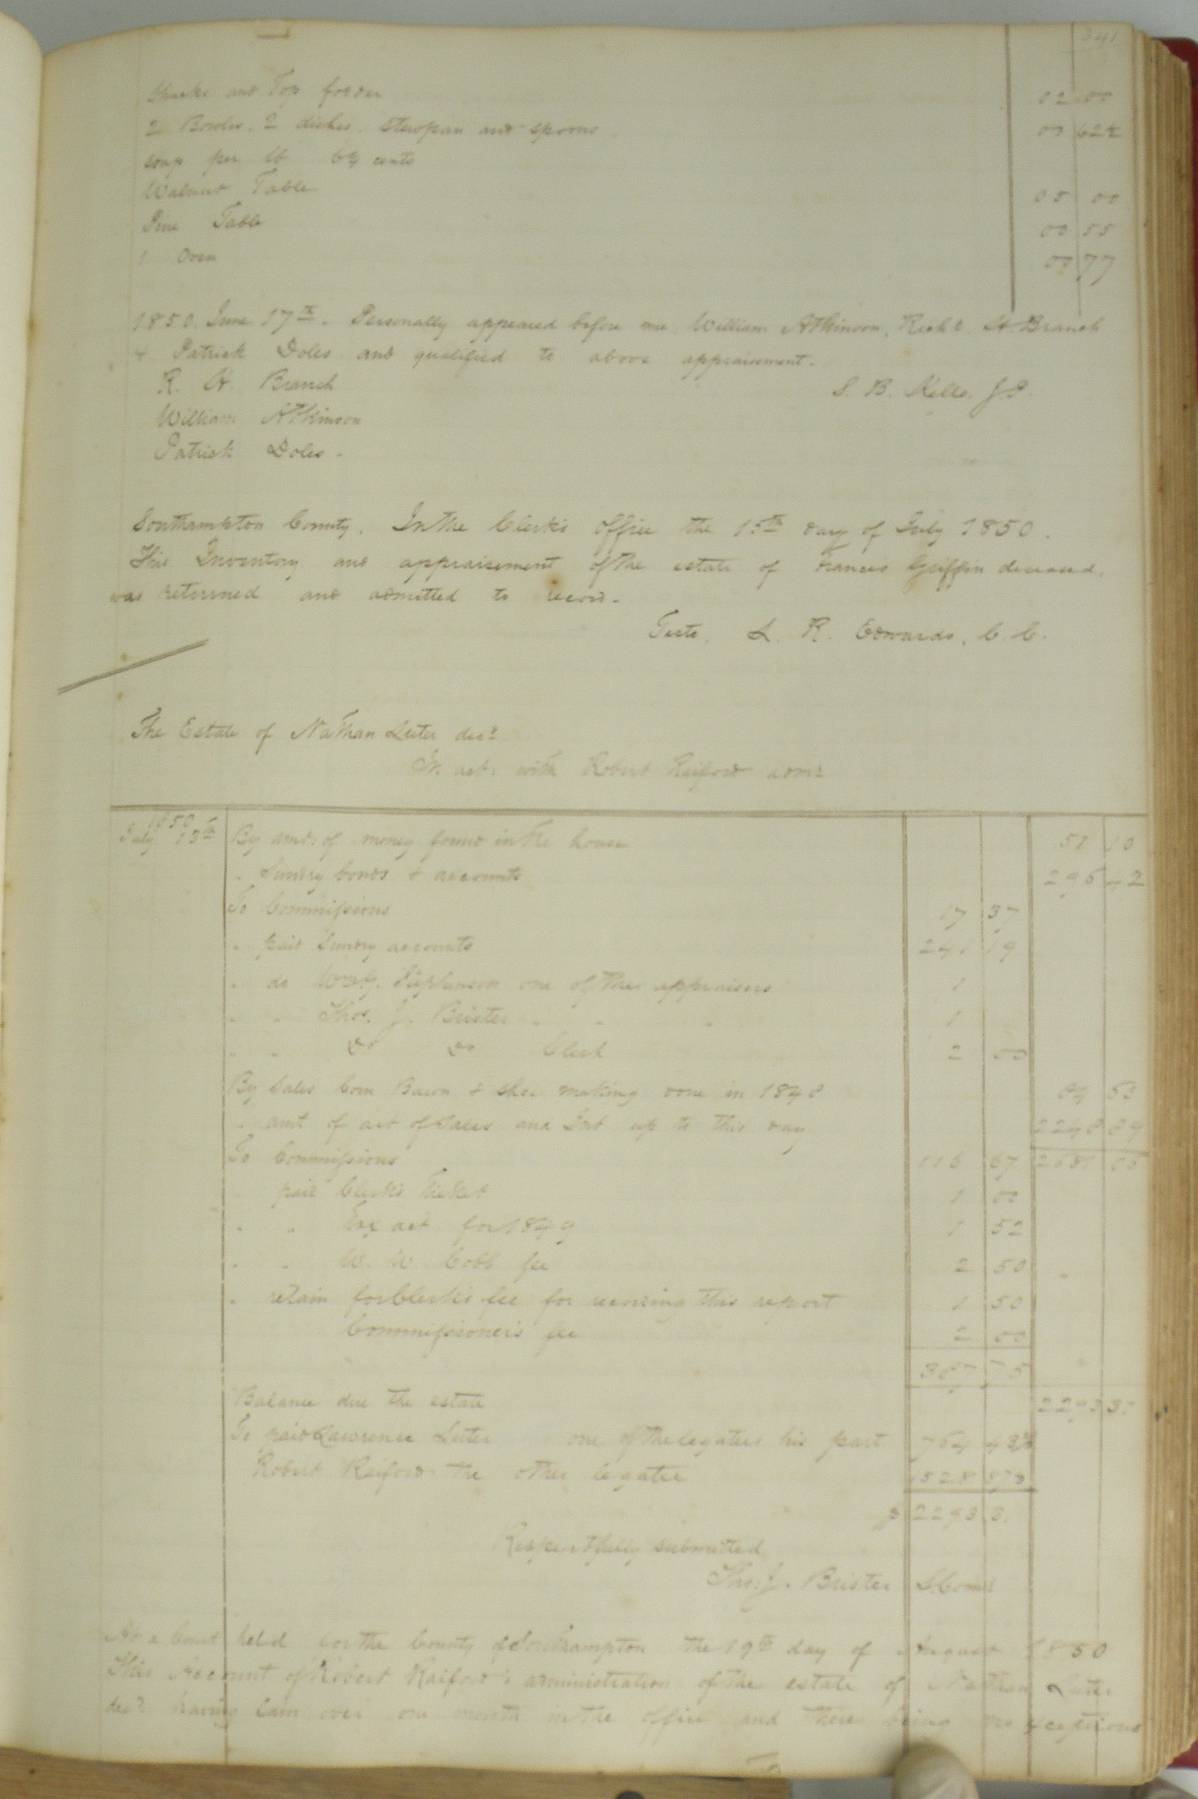 341
Shucks and Top fodder 02 00
2 Bowles. 2 dishes. stewpan and spoons 00 62½
soap per lb 6¼ cents
Walnut Table 05 00
Pine Table 00 55
1 Oven 00 77
1850. June 17th. Personally appeared before me William Atkinson, Richd. H Branch
& Patrick Doles and qualified to above appraisement.
R. H. Branch S. B. Kello. J P.
William Atkinson
Patrick Doles.
Southampton County. In the Clerk's office the 15th day of July 1850.
This Inventory and appraisement of the estate of Frances Griffin deceased,
was returned and admitted to record.
Teste. L. R. Edwards, C. C.
The Estate of Nathan Luter decd
In act. with Robert Raiford admr
1850
July 15th By amt. of money found in the house 51 10
" Sundry bonds & accounts 296 42
To Commissions 17 37
" paid Sundry accounts 241 19
" do Stephenson one of the appraisers 1
" " Thos. J. Brister " " " 1
" " do do Clerk 2 00
By Sales Corn Bacon & shoe making done in 1848 84 53
" amt of act of Sales and Int up to this day
To Commissions 116 67 2681 05
" paid Clerk's Ticket 1 00
" " Tax act for 1849 1 52
" " W. W. Cobb fee 2 50
" retain for Clerk's fee for recording this report 1 50
Commissioner's fee 2 00
387 75
Balance due the estate 2293 30
To paid Lawrence Luter one of the legatees his part 764 43⅓
Robert Raiford the other legatee 1528
$ 2293 3
Respectfully submitted
Thos. J. Brister
At a Court held for the County of Southampton the 19th day of August 1850
This Account of Robert Raiford's administration of the estate of Nathan Luter
decd. having lain over one month in the office and there being no exceptions